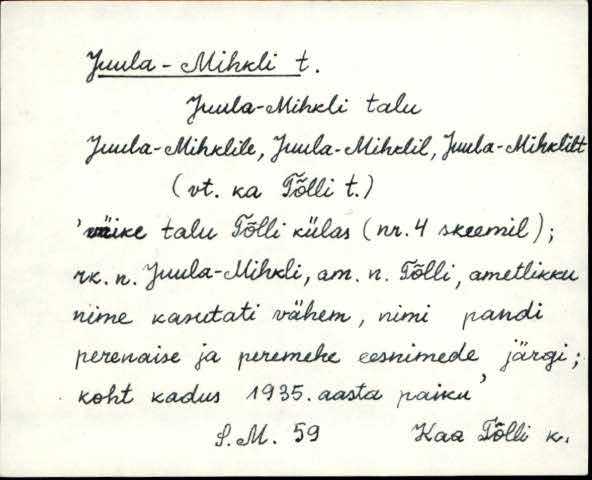 Juula-Mihkli t.
Juula-Mihkli talu
Juula-Mihklile, Juula-Mihklil, Juula-Mihklilt
(vt. ka Tõlli t.)
'väike talu Tõlli külas (nr. 4 skeemil);
rk. n. Juula-Mihkli, am. n. Tõlli, ametlikku
nime kasutati vähem, nimi pandi
perenaise ja peremehe eesnimede järgi;
koht kadus 1935. aasta paiku'
S. M. 59 Kaa Tõlli k.